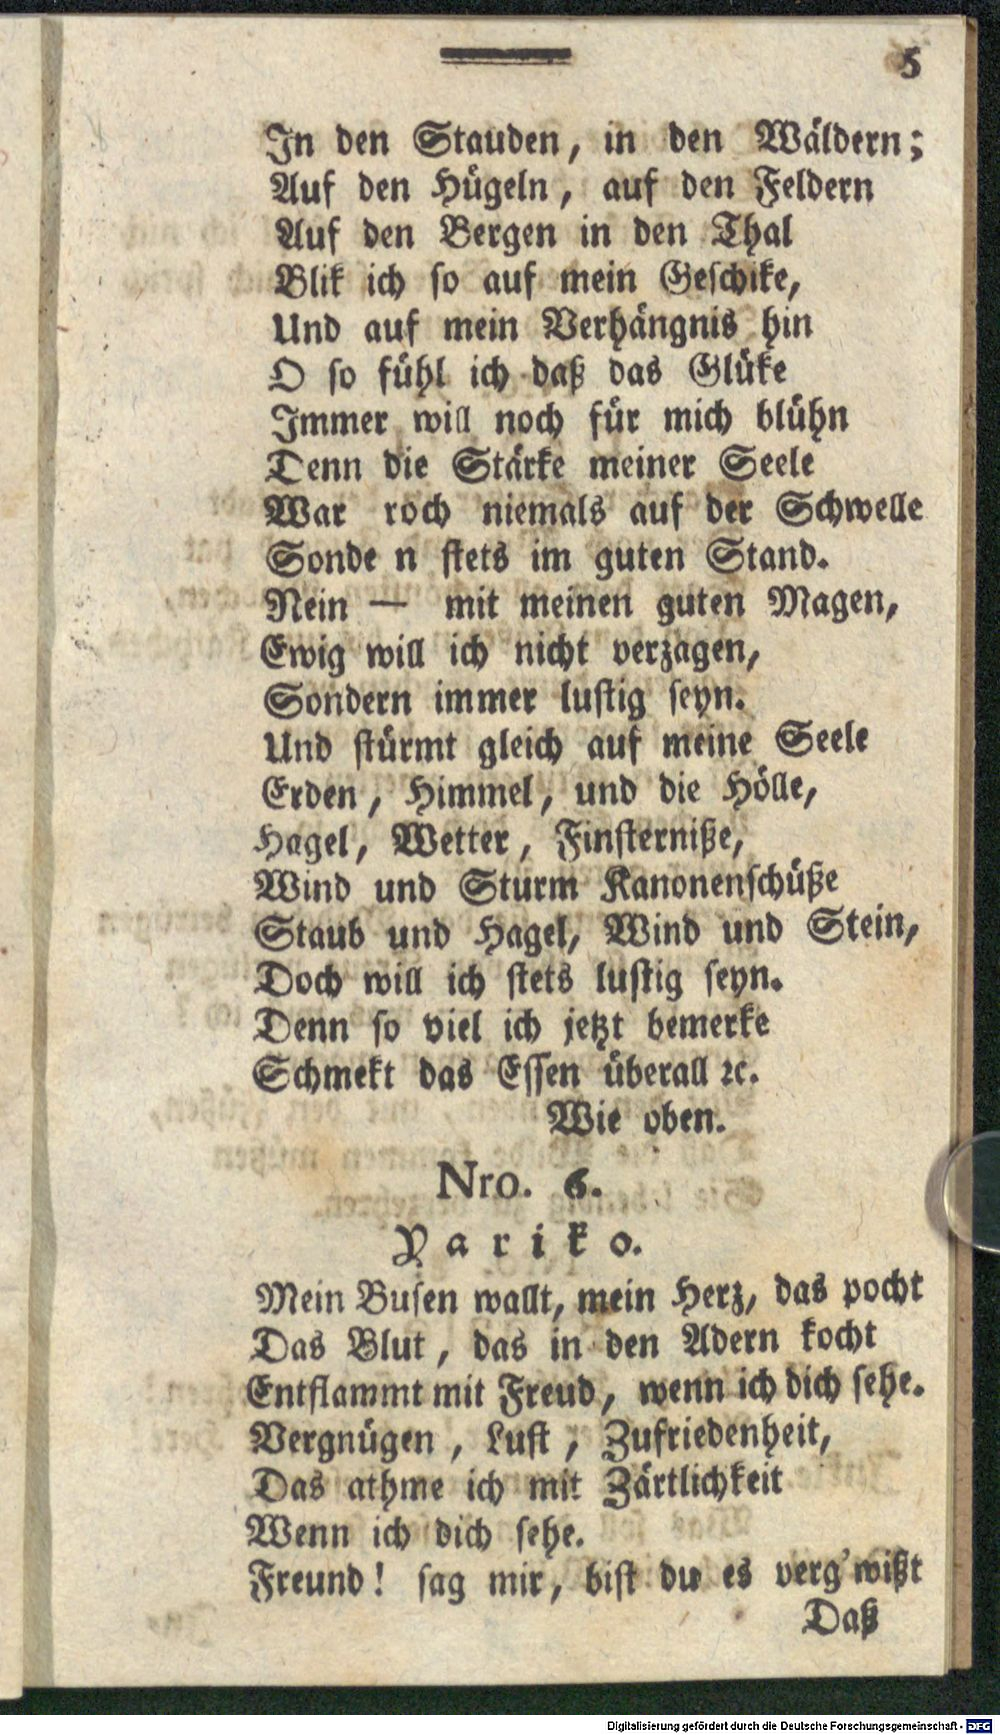 5
In den Stauden, in den Wäldern;
Auf den Hügeln, auf den Feldern
Auf den Bergen in den Thal
Blik ich so auf mein Geschike,
Und auf mein Verhängnis hin
O so fühl ich daß das Glüke
Immer will noch für mich blühn
Denn die Stärke meiner Seele
War roch niemals auf der Schwelle
Sonde n stets im guten Stand.
Nein — mit meinen guten Magen,
Ewig will ich nicht verzagen,
Sondern immer lustig seyn.
Und stürmt gleich auf meine Seele
Erden, Himmel, und die Hölle,
Hagel, Wetter, Finsterniße,
Wind und Sturm Kanonenschüße
Staub und Hagel, Wind und Stein,
Doch will ich stets lustig seyn.
Denn so viel ich jetzt bemerke
Schmekt das Essen überall ꝛc.
Wie oben.
Nro. 6.
Yariko.
Mein Busen wallt, mein Herz, das pocht
Das Blut, das in den Adern kocht
Entflammt mit Freud, wenn ich dich sehe.
Vergnügen, Lust, Zufriedenheit,
Das athme ich mit Zärtlichkeit
Wenn ich dich sehe.
Freund! sag mir, bist du es verg'wißt
Daß
Digitalisierung gefördert durch die Deutsche Forschungsgemeinschaft - DFG